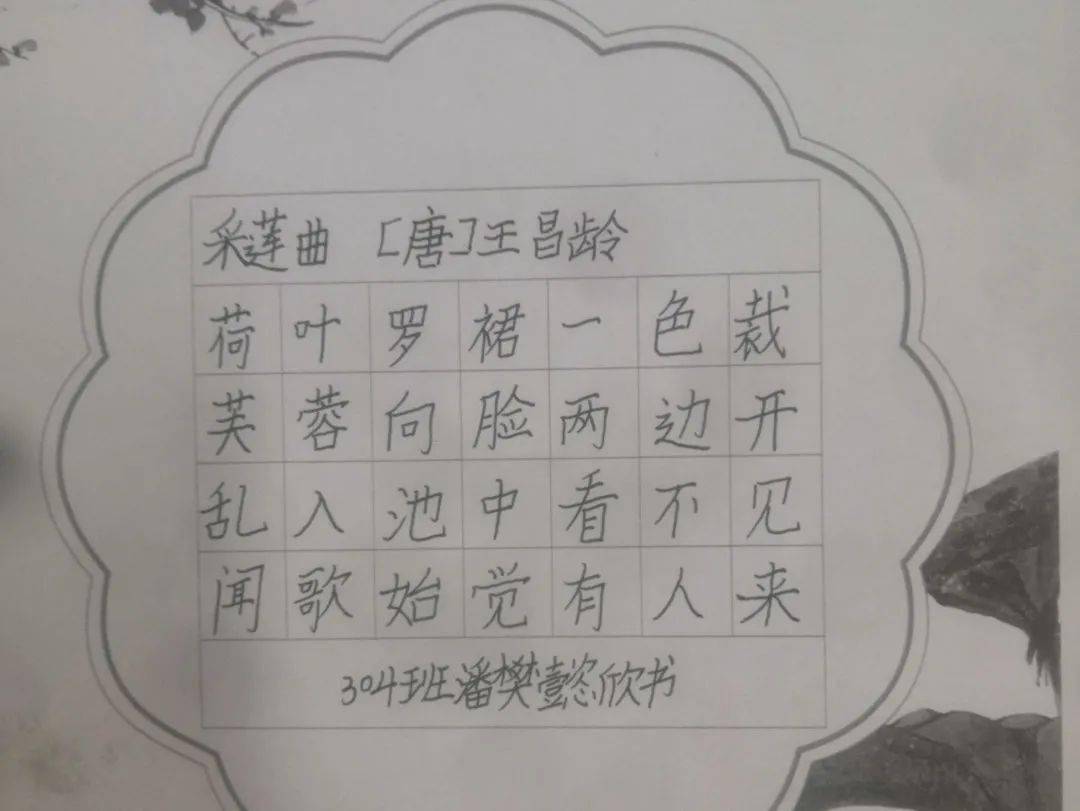 采莲曲 [唐]王昌龄
荷叶罗裙一色裁
芙蓉向脸两边开
乱入池中看不见
闻歌始觉有人来
304班潘樊懿欣书